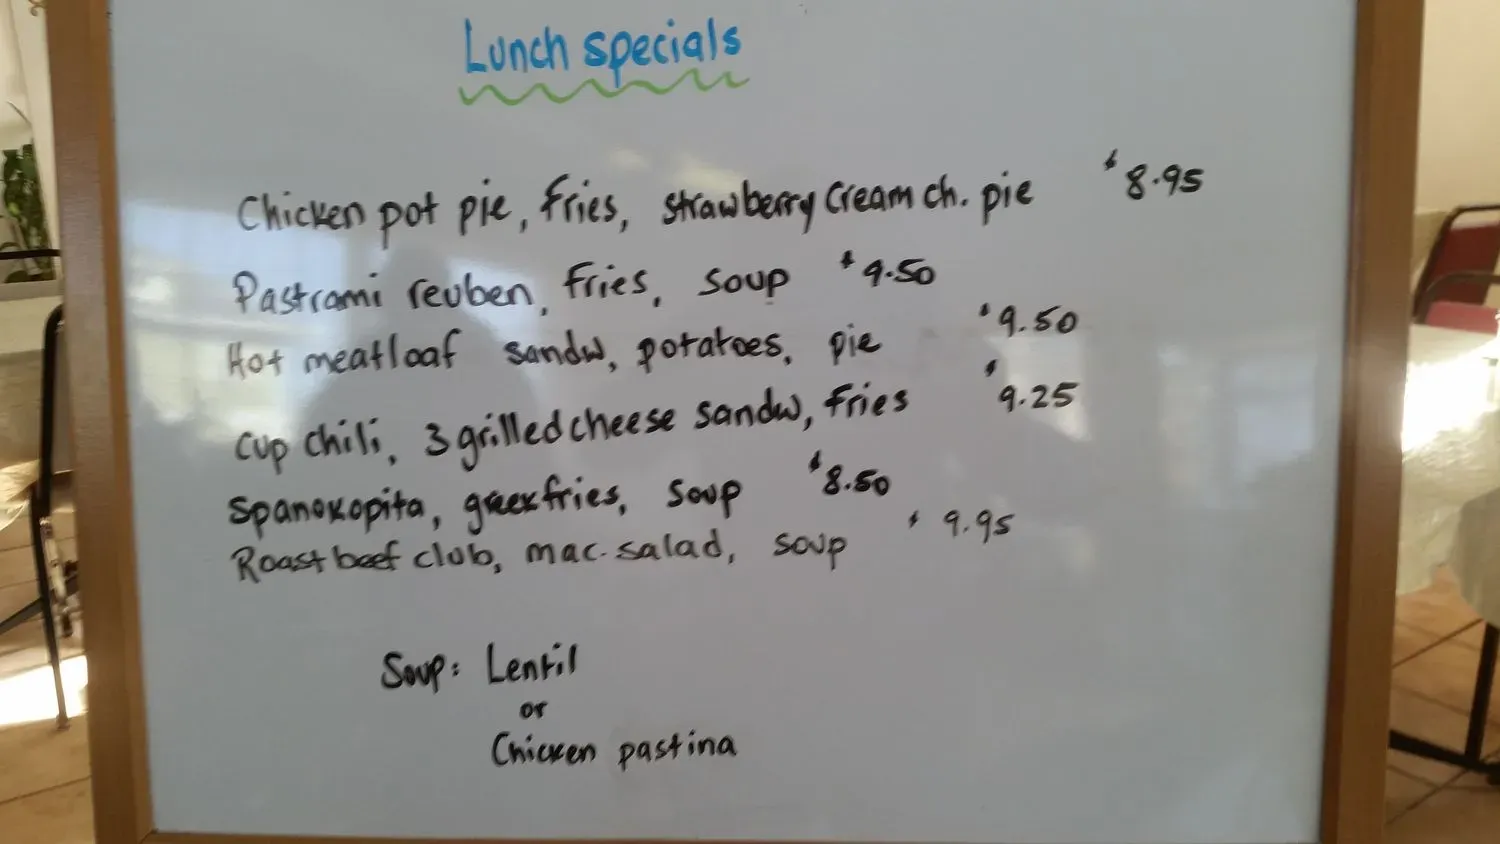 Lunch specials
Chicken pot pie, fries, strawberry cream ch. pie $8.95
Pastrami reuben, fries, soup $9.50
Hot meatloaf sandw, potatoes, pie $9.50
Cup chili, 3 grilled cheese sandw, fries $9.25
Spanokopita, greek fries, soup $8.50
Roast beef club, mac. salad, soup $9.95
Soup: Lentil
or
Chicken pastina